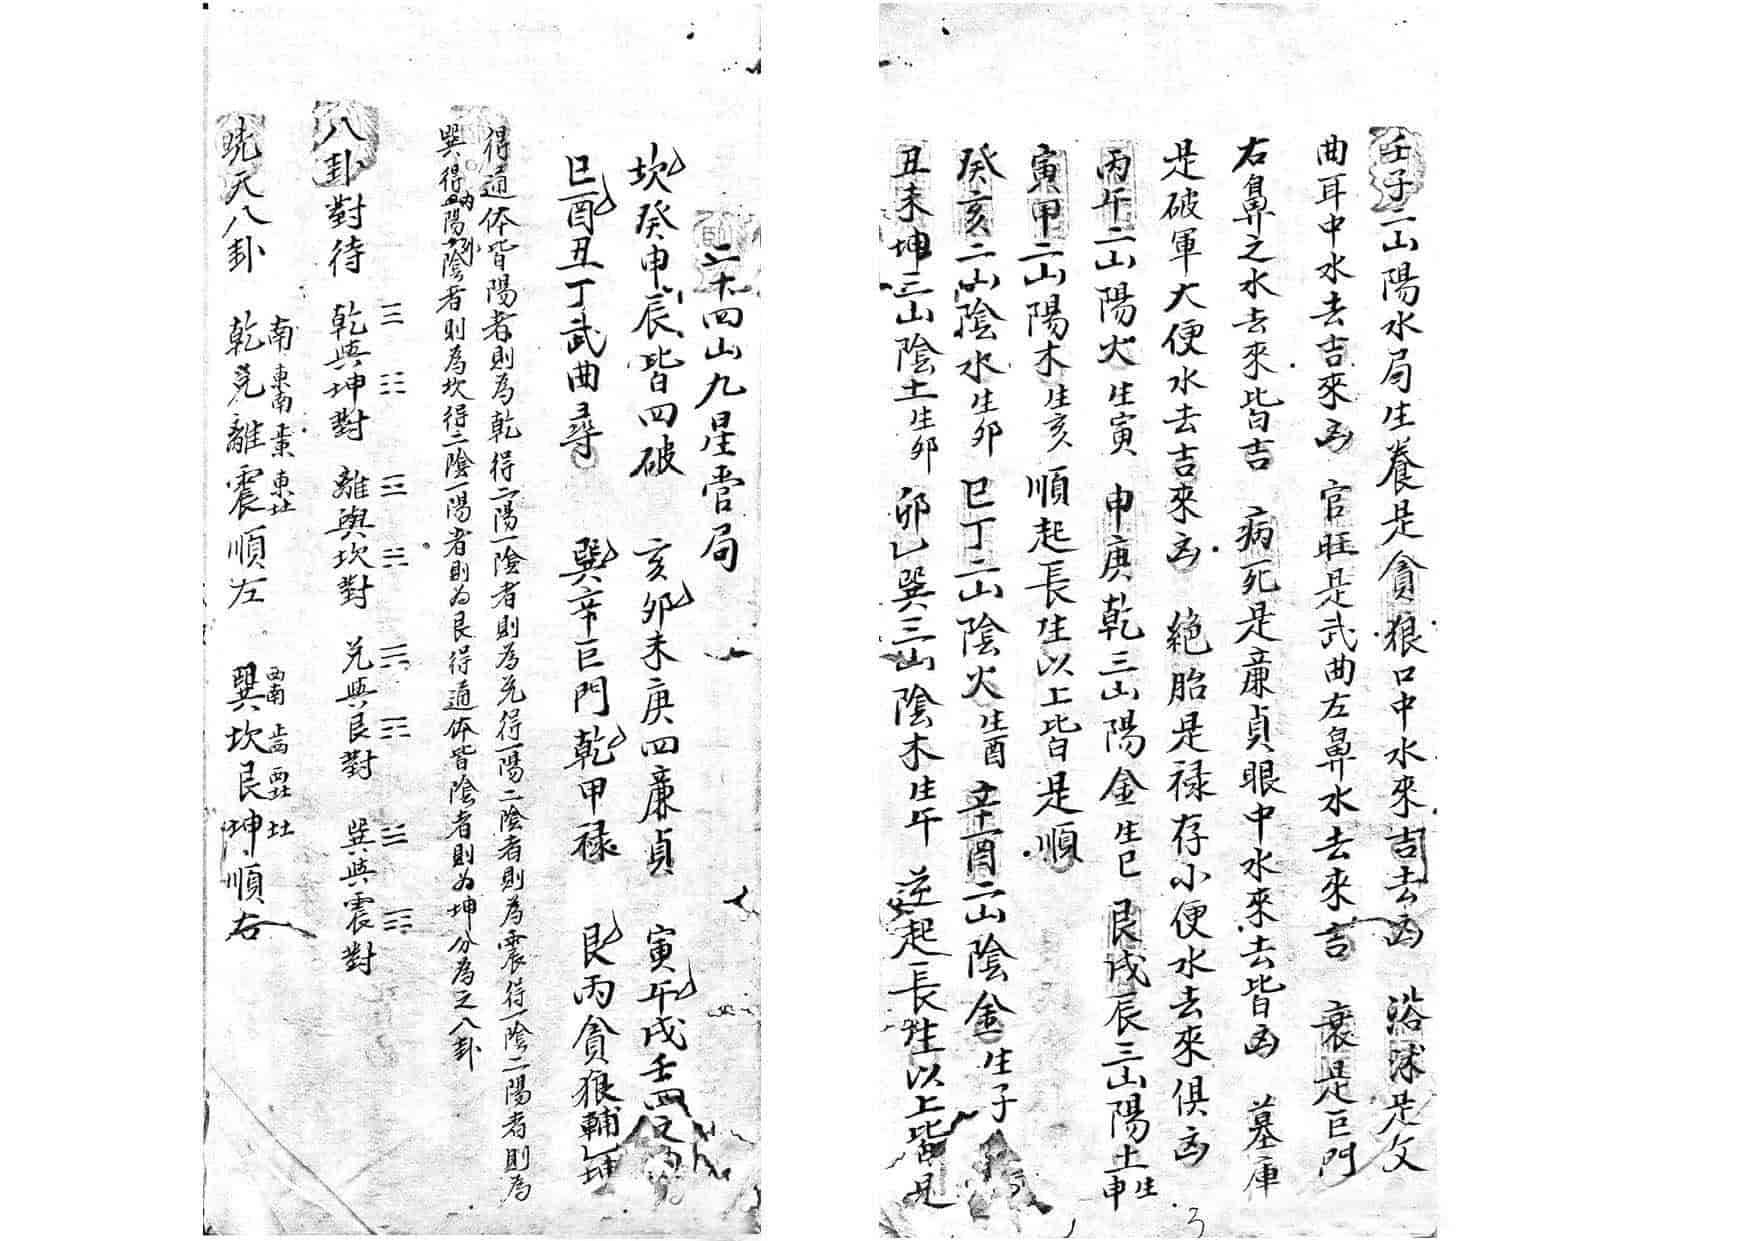 壬子二山陽水局生養是貪狼口中水來吉去凶 浴沐是文
曲耳中水去吉來凶 官旺是武曲左鼻水去來吉 衰是巨門
右鼻之水去來皆吉 病死是亷貞眼中水來去皆凶 墓庫
是破軍大便水去吉來凶 絕胎是祿存小便水去來俱凶
丙午二山陽火生寅 申庚乾三山陽金生巳 艮戌辰三山陽土生申
寅甲二山陽木生亥 順起長生以上皆是順
癸亥二山陰水生卯 巳丁二山陰火生酉 辛酉二山陰金生子
丑未坤三山陰土生卯 卯乙巽三山陰木生午 逆起長生以上皆是
二十四山九星管局
坎癸申辰皆四破 亥卯未庚四廉貞 寅午戌壬四文
巳酉丑丁武曲尋 巽辛巨門乾甲祿 艮丙貪狼輔乙坤
得通体皆陽者則為乾得二陽一陰者則為兌得一陽二陰者則為震得一陰二陽者則為
巽得兩陽陰者則為坎得二陰一陽者則为艮得通体皆陰者則为坤分為之八卦
八卦對待 乾與坤對 ☰ ☷ 離與坎對 ☲ ☵ 兌與艮對 ☱ ☶ 巽與震對 ☴ ☳
先天八卦 乾兌離震順左 南 東南 東 東北 巽坎艮坤順右 西南 西 西北 北